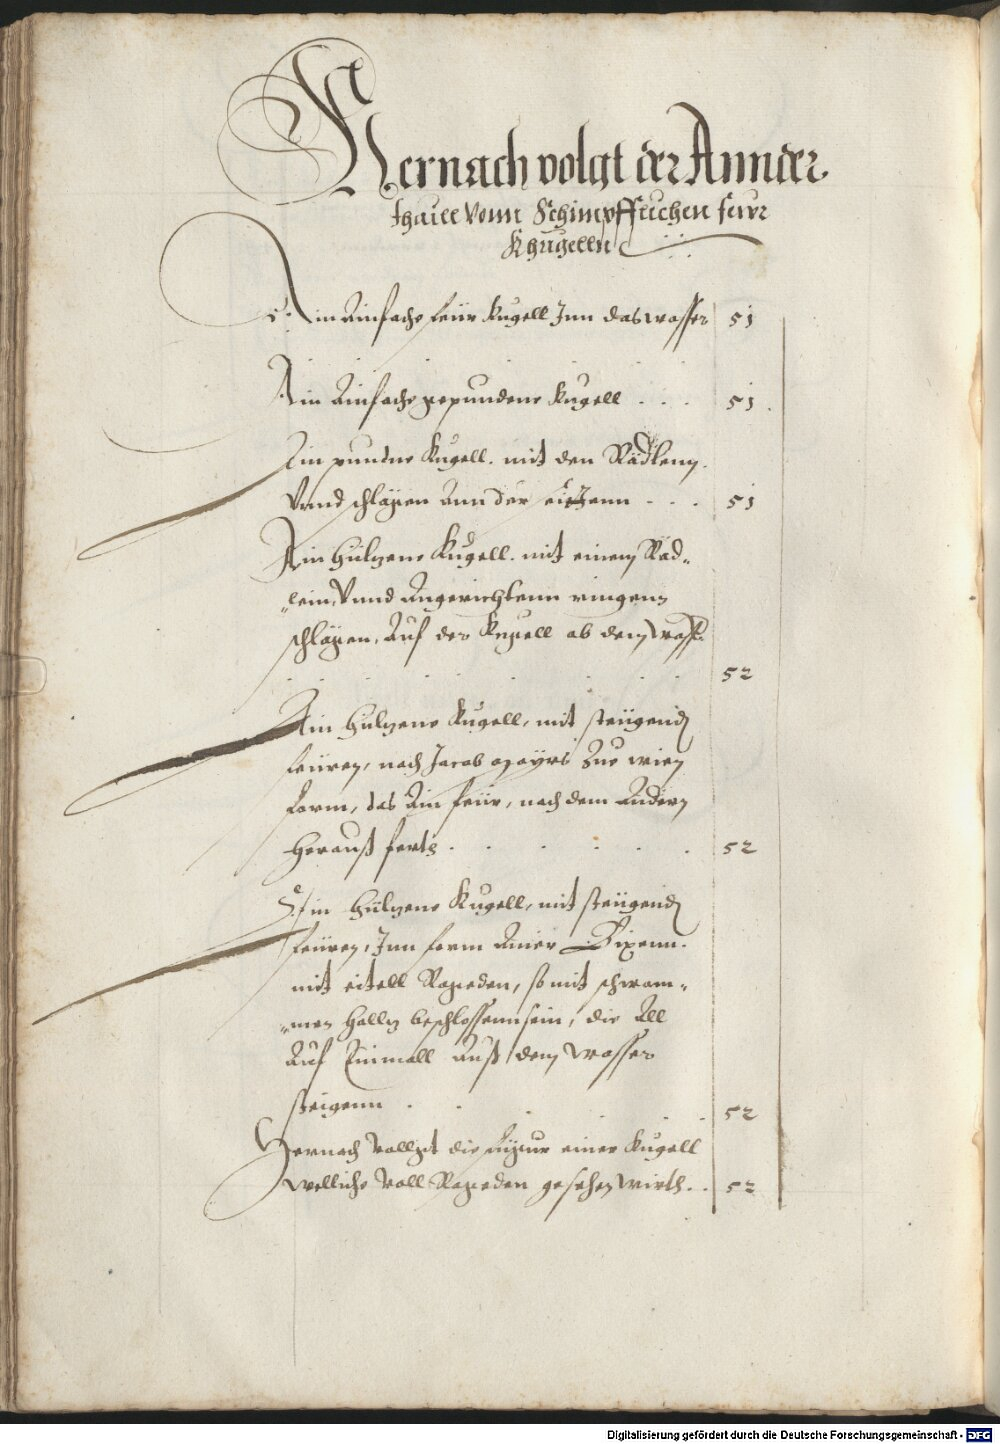 Hernach volgt der Annder
thaill vonn Schimpfflichen feur
Khugelln
Ain Ainfache feür Kugell Inn das wasser 51
Ain Ainfache gepundene Kugell . . . 51
Ain puntne Kugell. mit den Rädlenn.
Vnnd schlägen Ann der . . . 51
Ain hülzene Kugell. mit einem Räd-
lein, Vnnd Angerichtenn ringenn
schlägen, Auf der Kugell ob dem wasser
52
Ain hülzene Kugell, mit steigend
feüren, nach Jacob mayrs Zue wien
form, das Ain feür, nach dem Andern
herauß ferth . . . . . 52
Ain hülzene Kugell, mit steigend
feüren, Inn form Ainer Pixenn.
mit eitell Rageden, so mit schwam-
men beschlossenn sein, die All
Auf Einmall auß dem wasser
steigenn . . . . 52
Hernach vollgt die figur einer Kugell
welliche voll Rageden gesehen wirth . . 52
Digitalisierung gefördert durch die Deutsche Forschungsgemeinschaft - DFG